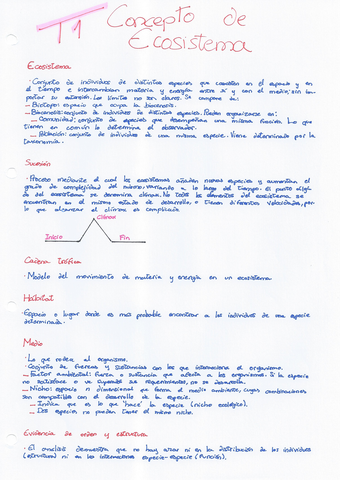 T1 Concepto de
Ecosistema
Ecosistema
· Conjunto de individuos de distintas especies que coexisten en el espacio y en
el tiempo e intercambian materia y energía entre sí y con el medio, sin im-
portar su extensión. Los límites no son claros. Se compone de:
- Biotopo: espacio que ocupa la biocenosis.
- Biocenosis: conjunto de individuos de distintas especies. Pueden organizarse en:
- Comunidad: conjunto de especies que desempeñan una misma función. Lo que
tienen en común lo determina el observador.
- Población: conjunto de individuos de una misma especie. Viene determinado por la
taxonomía.
Sucesión
· Proceso mediante el cual los ecosistemas añaden nuevas especies y aumentan el
grado de complejidad del mismo, variando a lo largo del tiempo. El punto álgi-
do del ecosistema se denomina clímax. No todos los elementos del ecosistema se
encuentran en el mismo estado de desarrollo, o tienen diferentes velocidades, por
lo que alcanzar el clímax es complicado
Clímax
Inicio
Fin
Cadena trófica
· Modelo del movimiento de materia y energía en un ecosistema
Hábitat
· Espacio o lugar donde es más probable encontrar a los individuos de una especie
determinada.
Medio
· Lo que rodea al organismo.
· Conjunto de fuerzas y sustancias con las que interacciona el organismo.
- Factor ambiental: fuerza o sustancia que afecta a los organismos. Si la especie
no satisface o ve cumplido sus requerimientos, no se desarrolla.
- Nicho: espacio n dimensional que forma el medio ambiente, cuyas combinaciones
son compatibles con el desarrollo de la especie.
- Indica qué es lo que "hace" la especie (nicho ecológico).
- Dos especies no pueden tener el mismo nicho.
Evidencia de orden y estructura
· El análisis demuestra que no hay azar ni en la distribución de los individuos
(estructura) ni en las interacciones especie-especie (función).